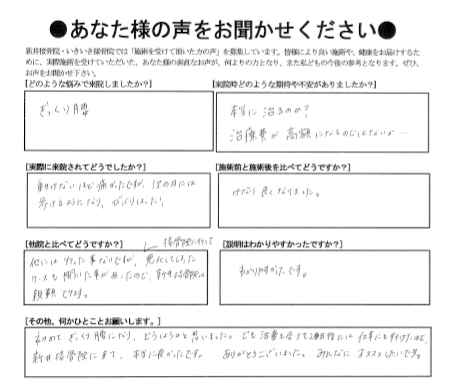 ●あなた様の声をお聞かせください●
新井接骨院・いきいき接骨院では「施術を受けて頂いた方の声」を募集しています。皆様により良い施術や、健康をお届けするた
めに、実際施術を受けていただいた、あなた様の素直なお声が、何よりの力となり、また私どもの今後の参考となります。ぜひ、
お声をお聞かせ下さい。
[どのような悩みで来院しましたか?]
ぎっくり腰
[来院時どのような期待や不安がありましたか?]
本当に治るのか?
治療費が高額になるのではないか…
[実際に来院されてどうでしたか?]
動けないほど痛かったですが、次の日には
歩けるようになり、びっくりしました。
[施術前と施術後を比べてどうですか?]
かなり良くなりました。
[他院と比べてどうですか?]
接骨院に行って
他には行った事ないですが、悪化してしまった
ケースも聞いた事があったので、新井接骨院は
信頼できます。
[説明はわかりやすかったですか?]
わかりやすかったです。
[その他、何かひとことお願いします。]
初めてぎっくり腰になり、どうしようかと思いました。でも治療を受けて2日後には仕事にも行けたので、
新井接骨院に来て、本当に良かったです。 ありがとうございました。 みんなに オススメしたいです。